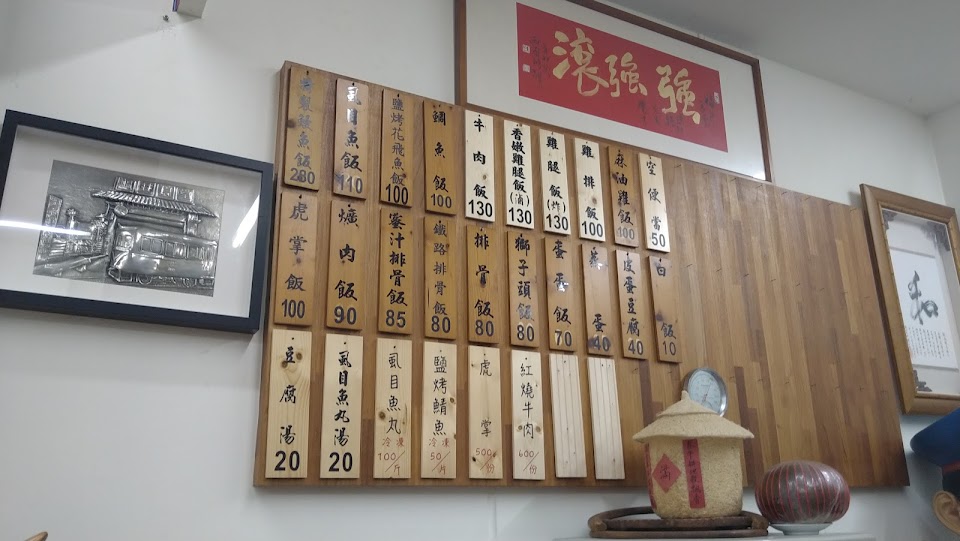 滾強強
和
虱目魚飯 110
鹽烤花飛魚飯 100
鯛魚飯 100
牛肉飯 130
香嫩雞腿飯(滷) 130
雞腿飯(炸) 130
雞排飯 100
麻油雞飯 100
空便當 50
虎掌飯 100
爌肉飯 90
蜜汁排骨飯 85
鐵路排骨飯 80
排骨飯 80
獅子頭飯 80
蛋蛋飯 70
蛋 40
皮蛋豆腐 40
白飯 10
豆腐湯 20
虱目魚丸湯 20
虱目魚丸 冷凍 100/斤
鹽烤鯖魚 冷凍 50/片
虎掌 500/份
紅燒牛肉 600/份
滿